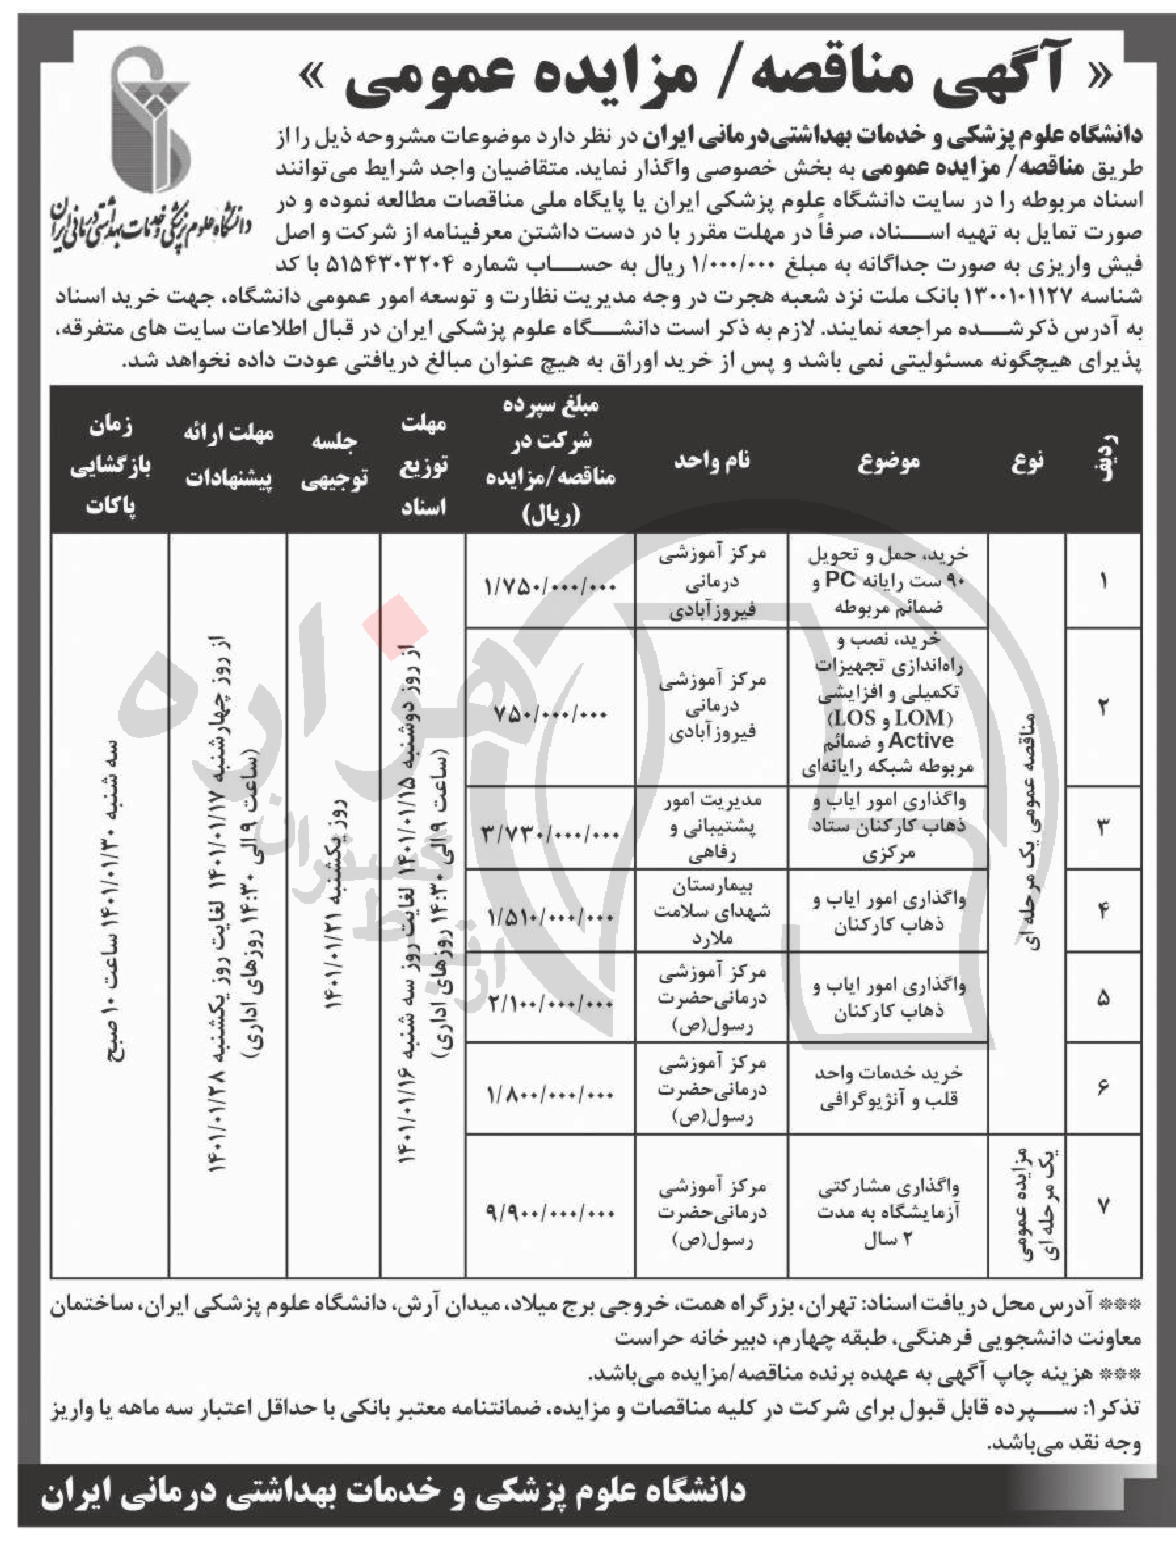 « آگهی مناقصه/ مزایده عمومی »
دانشگاه علوم پزشکی و خدمات بهداشتی درمانی ایران
دانشگاه علوم پزشکی و خدمات بهداشتی درمانی ایران در نظر دارد موضوعات مشروحه ذیل را از
طریق مناقصه/ مزایده عمومی به بخش خصوصی واگذار نماید. متقاضیان واجد شرایط می‌توانند
اسناد مربوطه را در سایت دانشگاه علوم پزشکی ایران یا پایگاه ملی مناقصات مطالعه نموده و در
صورت تمایل به تهیه اسـناد، صرفاً در مهلت مقرر با در دست داشتن معرفینامه از شرکت و اصل
فیش واریزی به صورت جداگانه به مبلغ ۱/۰۰۰/۰۰۰ ریال به حساب شماره ۵۱۵۴۳۰۳۲۰۴ با کد
شناسه ۱۳۰۰۱۰۱۱۲۷ بانک ملت نزد شعبه هجرت در وجه مدیریت نظارت و توسعه امور عمومی دانشگاه، جهت خرید اسناد
به آدرس ذکرشده مراجعه نمایند. لازم به ذکر است دانشگاه علوم پزشکی ایران در قبال اطلاعات سایت های متفرقه،
پذیرای هیچگونه مسئولیتی نمی باشد و پس از خرید اوراق به هیچ عنوان مبالغ دریافتی عودت داده نخواهد شد.
ردیف
نوع
موضوع
نام واحد
مبلغ سپرده
شرکت در
مناقصه/مزایده
(ریال)
مهلت
توزیع
اسناد
جلسه
توجیهی
مهلت ارائه
پیشنهادات
زمان
بازگشایی
پاکات
۱
مناقصه عمومی یک مرحله ای
خرید، حمل و تحویل
۹۰ ست رایانه PC و
ضمائم مربوطه
مرکز آموزشی
درمانی
فیروزآبادی
۱/۷۵۰/۰۰۰/۰۰۰
از روز دوشنبه ۱۴۰۱/۰۱/۱۵ لغایت روز سه شنبه ۱۴۰۱/۰۱/۱۶
(ساعت ۹ الی ۱۴:۳۰ روزهای اداری)
روز یکشنبه ۱۴۰۱/۰۱/۲۱
از روز چهارشنبه ۱۴۰۱/۰۱/۱۷ لغایت روز یکشنبه ۱۴۰۱/۰۱/۲۸
(ساعت ۹ الی ۱۴:۳۰ روزهای اداری)
سه شنبه ۱۴۰۱/۰۱/۳۰ ساعت ۱۰ صبح
۲
خرید، نصب و
راه‌اندازی تجهیزات
تکمیلی و افزایشی
(LOM و LOS)
Active و ضمائم
مربوطه شبکه رایانه‌ای
مرکز آموزشی
درمانی
فیروزآبادی
۷۵۰/۰۰۰/۰۰۰
۳
واگذاری امور ایاب و
ذهاب کارکنان ستاد
مرکزی
مدیریت امور
پشتیبانی و
رفاهی
۳/۷۳۰/۰۰۰/۰۰۰
۴
واگذاری امور ایاب و
ذهاب کارکنان
بیمارستان
شهدای سلامت
ملارد
۱/۵۱۰/۰۰۰/۰۰۰
۵
واگذاری امور ایاب و
ذهاب کارکنان
مرکز آموزشی
درمانی حضرت
رسول(ص)
۲/۱۰۰/۰۰۰/۰۰۰
۶
خرید خدمات واحد
قلب و آنژیوگرافی
مرکز آموزشی
درمانی حضرت
رسول(ص)
۱/۸۰۰/۰۰۰/۰۰۰
۷
مزایده عمومی
یک مرحله ای
واگذاری مشارکتی
آزمایشگاه به مدت
۲ سال
مرکز آموزشی
درمانی حضرت
رسول(ص)
۹/۹۰۰/۰۰۰/۰۰۰
هزاره
*** آدرس محل دریافت اسناد: تهران، بزرگراه همت، خروجی برج میلاد، میدان آرش، دانشگاه علوم پزشکی ایران، ساختمان
معاونت دانشجویی فرهنگی، طبقه چهارم، دبیرخانه حراست
*** هزینه چاپ آگهی به عهده برنده مناقصه/مزایده می‌باشد.
تذکر۱: سپرده قابل قبول برای شرکت در کلیه مناقصات و مزایده، ضمانتنامه معتبر بانکی با حداقل اعتبار سه ماهه یا واریز
وجه نقد می‌باشد.
دانشگاه علوم پزشکی و خدمات بهداشتی درمانی ایران